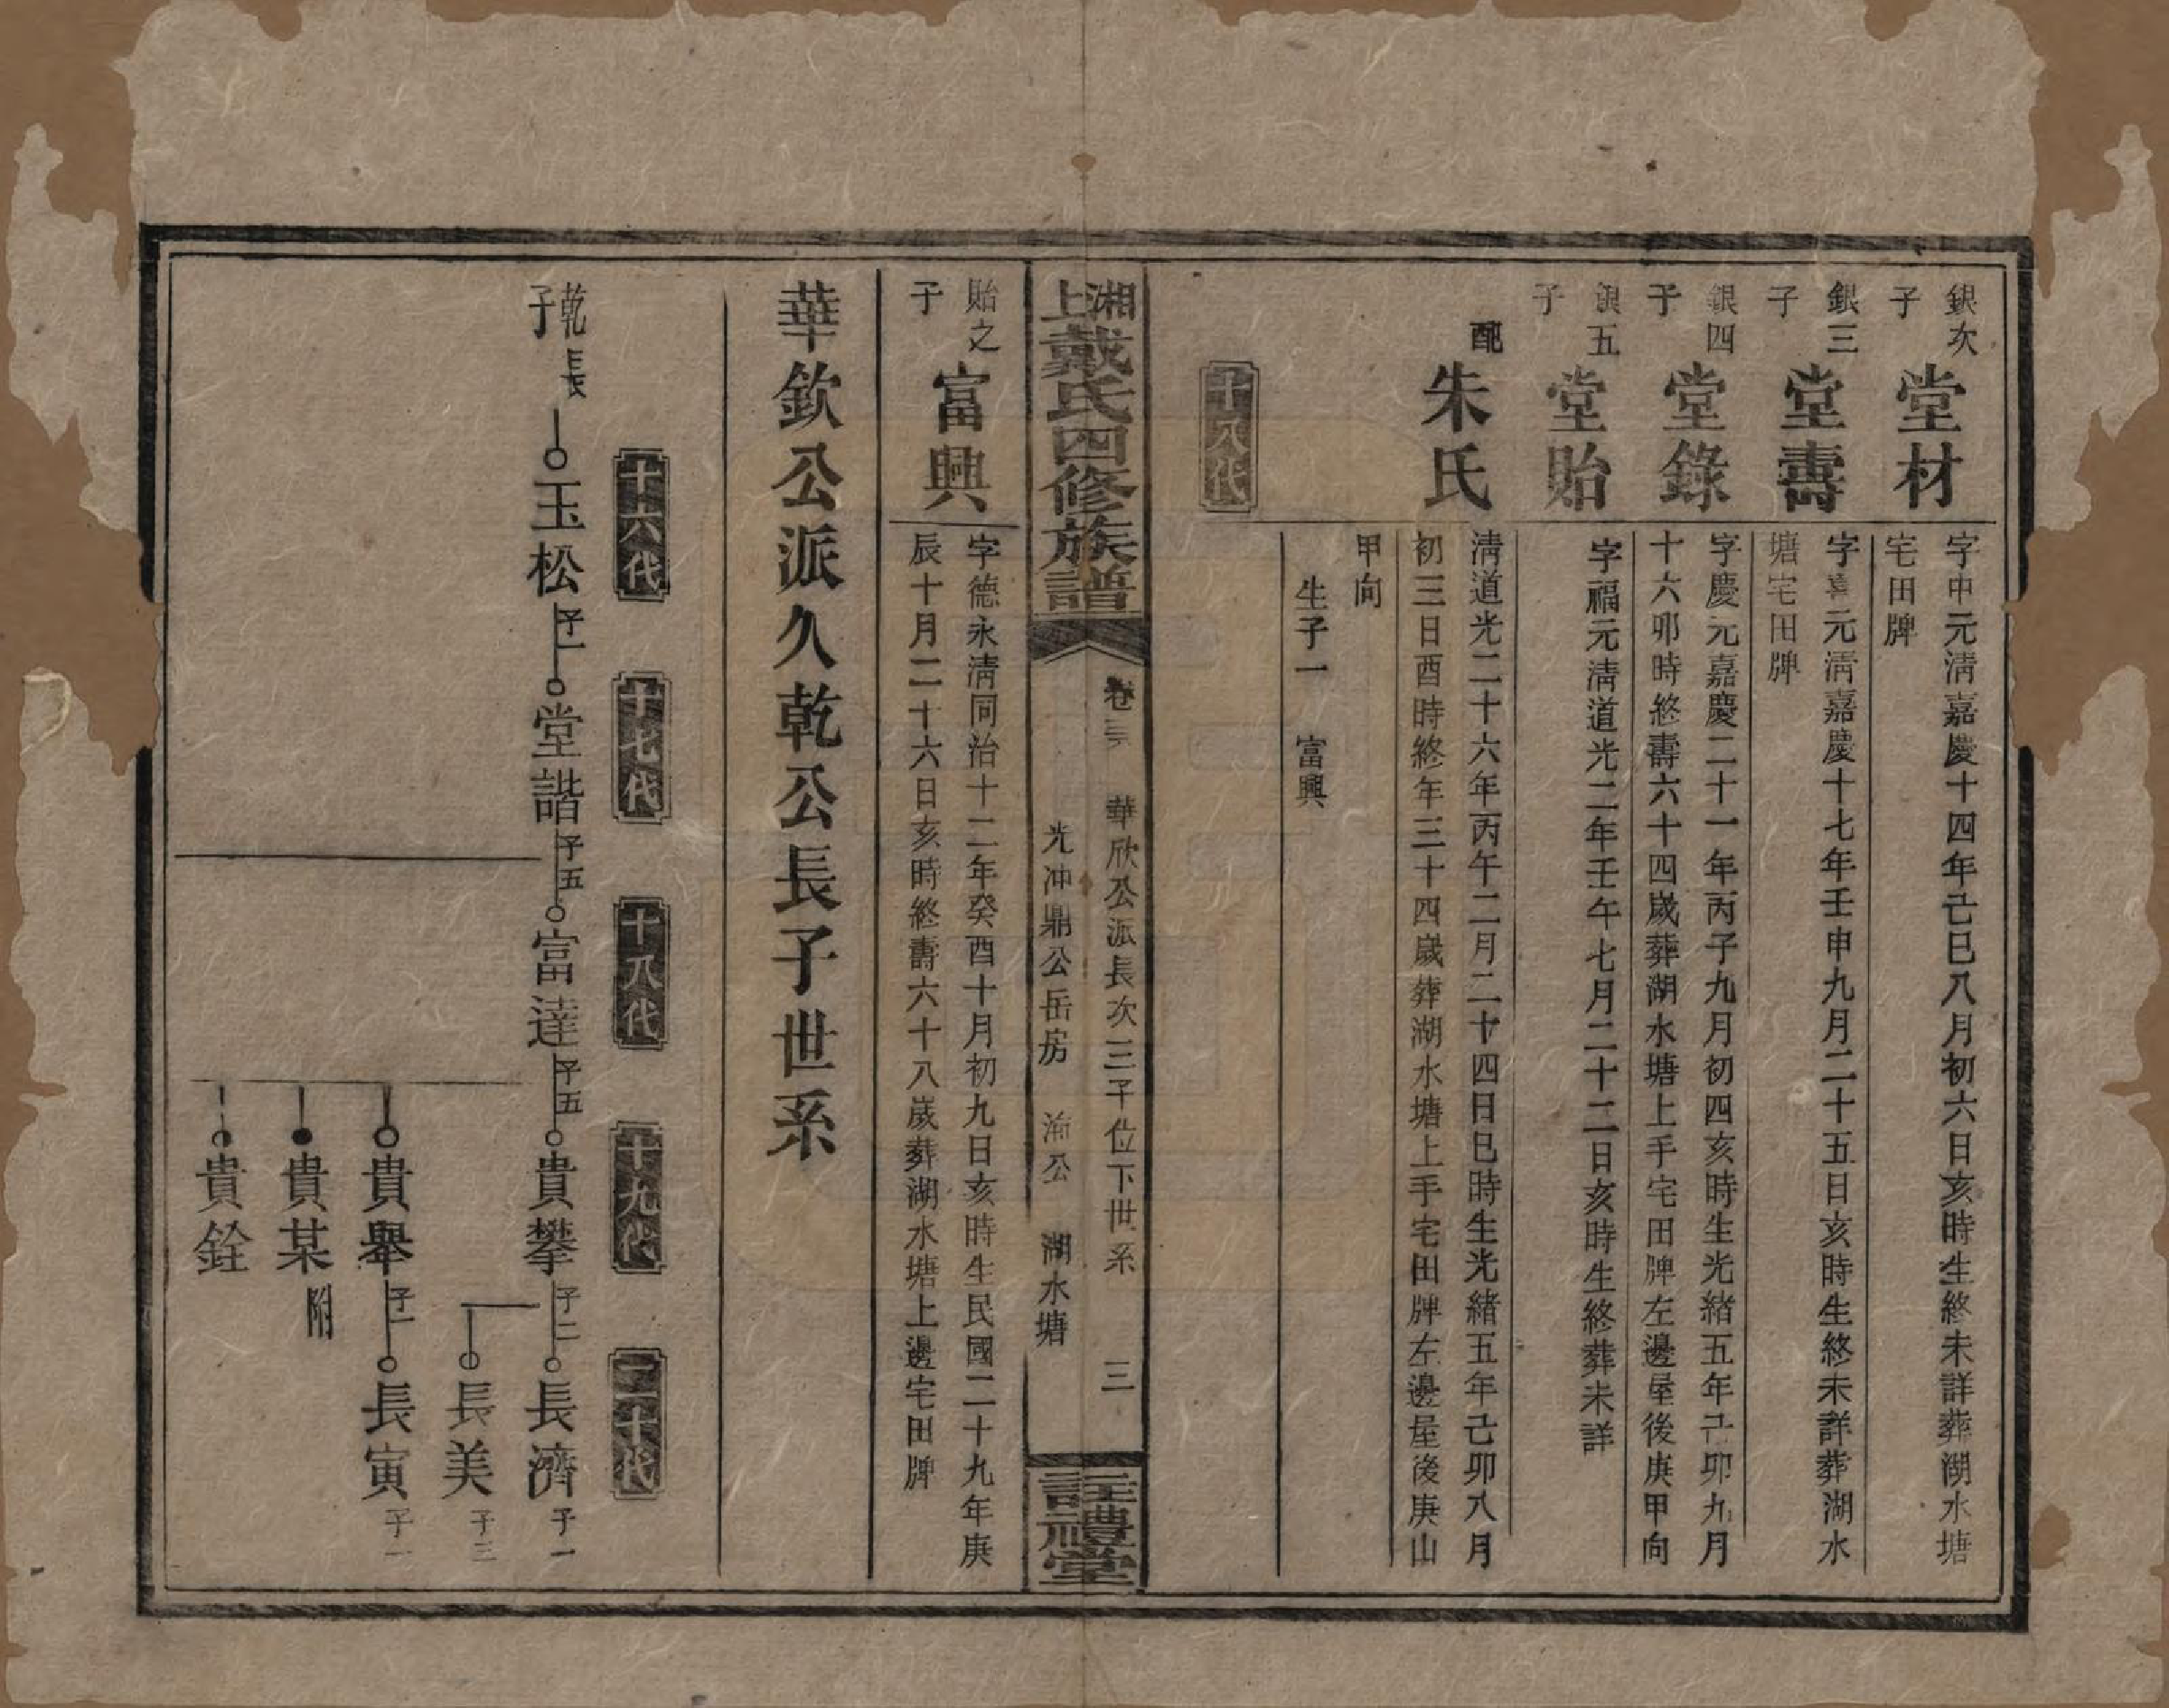 銀次子
堂材
字中元清嘉慶十四年己巳八月初六日亥時生終未詳葬湖水塘
宅田牌
銀三子
堂壽
字喜元清嘉慶十七年壬申九月二十五日亥時生終未詳葬湖水
塘宅田牌
銀四子
堂錄
字慶元嘉慶二十一年丙子九月初四亥時生光緒五年己卯九月
十六卯時終壽六十四歲葬湖水塘上手宅田牌左邊屋後庚甲向
銀五子
堂貽
字福元清道光二年壬午七月二十二日亥時生終葬未詳
配
朱氏
清道光二十六年丙午二月二十四日巳時生光緒五年己卯八月
初三日酉時終年三十四歲葬湖水塘上手宅田牌左邊屋後庚山
甲向
生子一 富興
十八代
湘上戴氏四修族譜
卷三 華欣公派長次三子位下世系 三
光冲鼎公岳房 公 湖水塘
註禮堂
貽之子
富興
字德永清同治十二年癸酉十月初九日亥時生民國二十九年庚
辰十月二十六日亥時終壽六十八歲葬湖水塘上邊宅田牌
華欽公派久乾公長子世系
十六代 十七代 十八代 十九代 二十代
乾長子 玉松 子一 堂諧 子五 富達 子五 貴攀 子二 長濟 子一
長美 子三
貴舉 子一 長寅 子一
貴某 附
貴銓